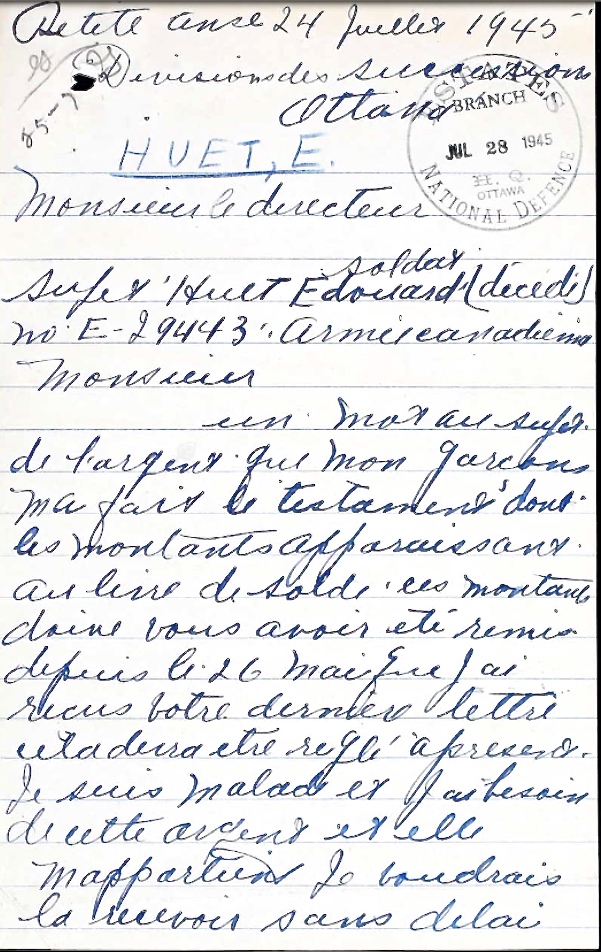 Petite anse 24 Juillet 1945
Divisiondes successions
Ottawa
ESTATES
BRANCH
JUL 28 1945
H. Q.
OTTAWA
NATIONAL DEFENCE
HUET, E.
Monsieur le directeur
soldat
sujet Huet Edouard (décédé)
no. E-29443. Armée canadienne
Monsieur
un mot au sujet
de l'argent que mon garcons
ma fait le testament dont
les montants apparaissant
au livre de solde ces montants
doive vous avoir été remis
depuis le 26 mai que J ai
recus votre dernière lettre
cela devra etre reglé apresent.
Je suis malade et J ai besoin
de cette argent et elle
mappartient Je voudrais
la recevoir sans delai